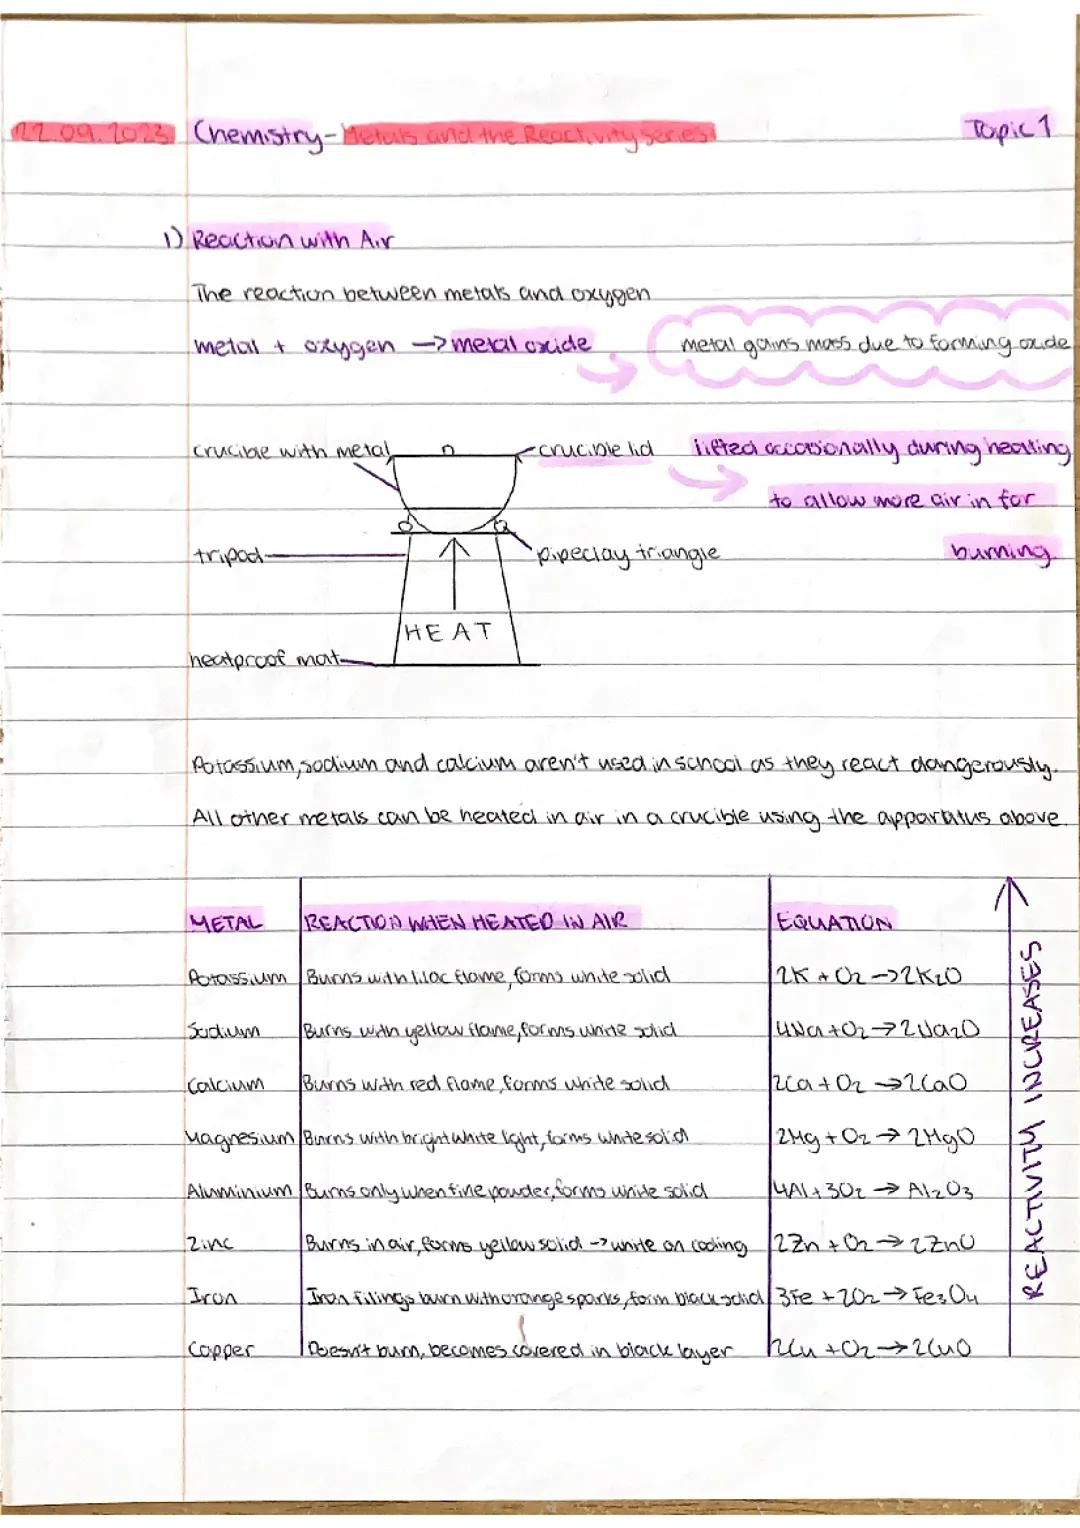 22.09.2023 Chemistry - Metals and the Reactivity Series Topic 1
1) Reaction with Air
The reaction between metals and oxygen
metal + oxygen → metal oxide metal gains mass due to forming oxide
crucible with metal crucible lid lifted occasionally during heating
to allow more air in for
tripod pipeclay triangle burning
HEAT
heatproof mat
Potassium, sodium and calcium aren't used in school as they react dangerously.
All other metals can be heated in air in a crucible using the apparatus above.
METAL REACTION WHEN HEATED IN AIR EQUATION
Potassium Burns with lilac flame, forms white solid 2K + O2 → 2K2O
Sodium Burns with yellow flame, forms white solid 4Na + O2 → 2Na2O
Calcium Burns with red flame, forms white solid 2Ca + O2 → 2CaO
Magnesium Burns with bright white light, forms white solid 2Mg + O2 → 2MgO
Aluminium Burns only when fine powder, forms white solid 4Al + 3O2 → Al2O3
Zinc Burns in air, forms yellow solid → white on cooling 2Zn + O2 → 2ZnO
Iron Iron filings burn with orange sparks, form black solid 3Fe + 2O2 → Fe3O4
Copper Doesn't burn, becomes covered in black layer 2Cu + O2 → 2CuO
REACTIVITY INCREASES